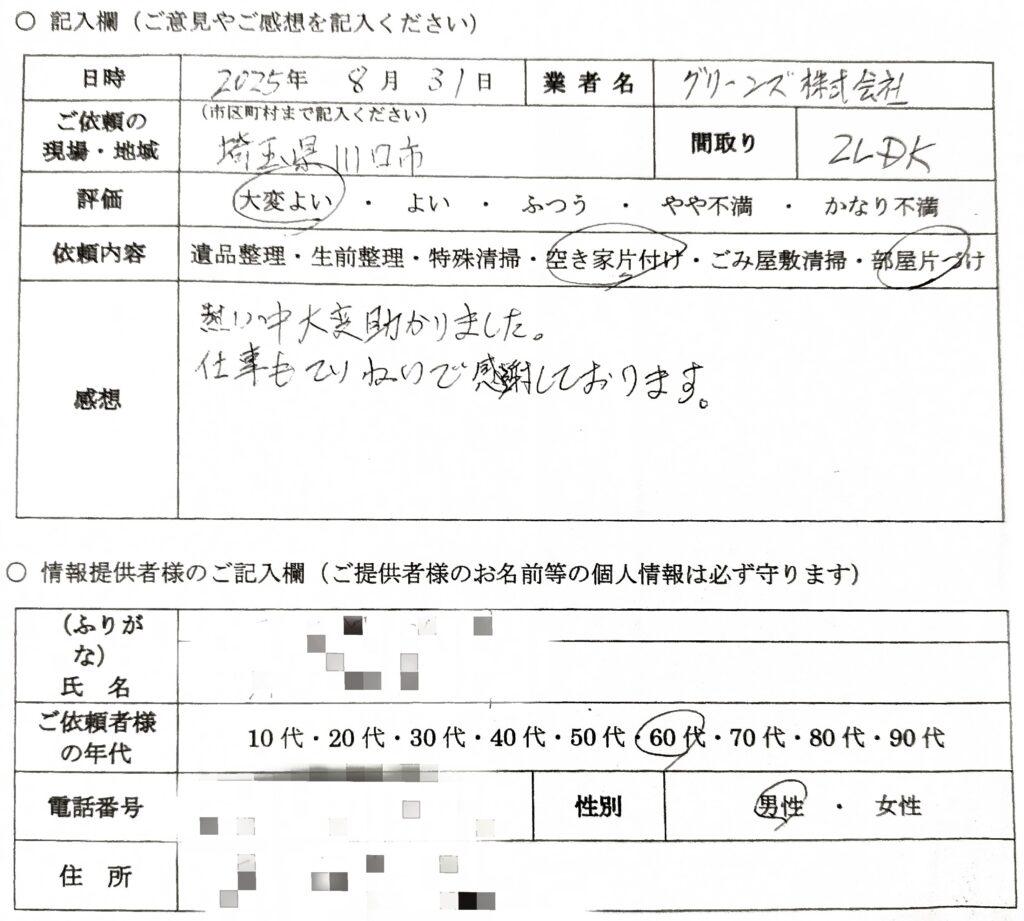 ○ 記入欄（ご意見やご感想を記入ください）
日時 2025年 8月 31日 業者名 グリーンズ株式会社
ご依頼の現場・地域 （市区町村まで記入ください） 間取り 2LDK
埼玉県川口市
評価 大変よい ・ よい ・ ふつう ・ やや不満 ・ かなり不満
依頼内容 遺品整理・生前整理・特殊清掃・空き家片付け・ごみ屋敷清掃・部屋片づけ
感想
熱い中大変助かりました。
仕事もていねいで感謝しております。
○ 情報提供者様のご記入欄（ご提供者様のお名前等の個人情報は必ず守ります）
（ふりがな）
氏 名
ご依頼者様の年代 10代・20代・30代・40代・50代・60代・70代・80代・90代
電話番号 性別 男性 ・ 女性
住 所